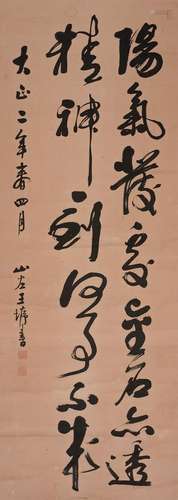 陽氣發處金石亦透
精神到何事不成
大正二年春四月
山左王琦書